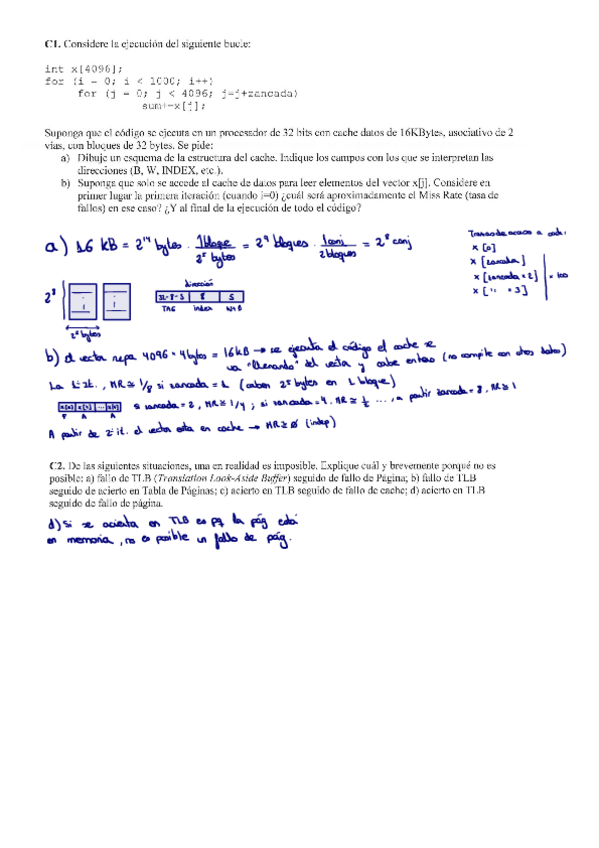 C1. Considere la ejecución del siguiente bucle:
int x[4096];
for (i = 0; i < 1000; i++)
for (j = 0; j < 4096; j=j+zancada)
sum+=x[j];
Suponga que el código se ejecuta en un procesador de 32 bits con cache datos de 16KBytes, asociativo de 2
vías, con bloques de 32 bytes. Se pide:
a) Dibuje un esquema de la estructura del cache. Indique los campos con los que se interpretan las
direcciones (B, W, INDEX, etc.).
b) Suponga que solo se accede al cache de datos para leer elementos del vector x[j]. Considere en
primer lugar la primera iteración (cuando i=0) ¿cuál será aproximadamente el Miss Rate (tasa de
fallos) en ese caso? ¿Y al final de la ejecución de todo el código?
a) 16 KB = 2^14 bytes · 1 bloque / 2^5 bytes = 2^9 bloques · 1 conj / 2 bloques = 2^8 conj
x [0]
x [zancada]
x [zancada * 2]
x [ " * 3]
2^8
dirección
32-8-5 8 5
TAG index W+B
2^5 bytes
b) el vector 4096 * 4 bytes = 16KB → se ejecuta el código el cache se
va "llenando" del vector y cabe entero (no compite con otros datos)
La 1ª it., MR ≅ 1/8 si zancada = 1 (caben 2^5 bytes en 1 bloque)
x[0] x[1] ... x[7] si zancada = 2, MR ≅ 1/4; si zancada = 4, MR ≅ 1/2 ..., a partir zancada = 8, MR ≅ 1
F A A
A partir de 2ª it. el vector esta en cache → MR ≅ 0 (indep)
C2. De las siguientes situaciones, una en realidad es imposible. Explique cuál y brevemente porqué no es
posible: a) fallo de TLB (Translation Look-Aside Buffer) seguido de fallo de Página; b) fallo de TLB
seguido de acierto en Tabla de Páginas; c) acierto en TLB seguido de fallo de cache; d) acierto en TLB
seguido de fallo de página.
d) Si se acierta en TLB es pq la pág está
en memoria, no es posible un fallo de pág.